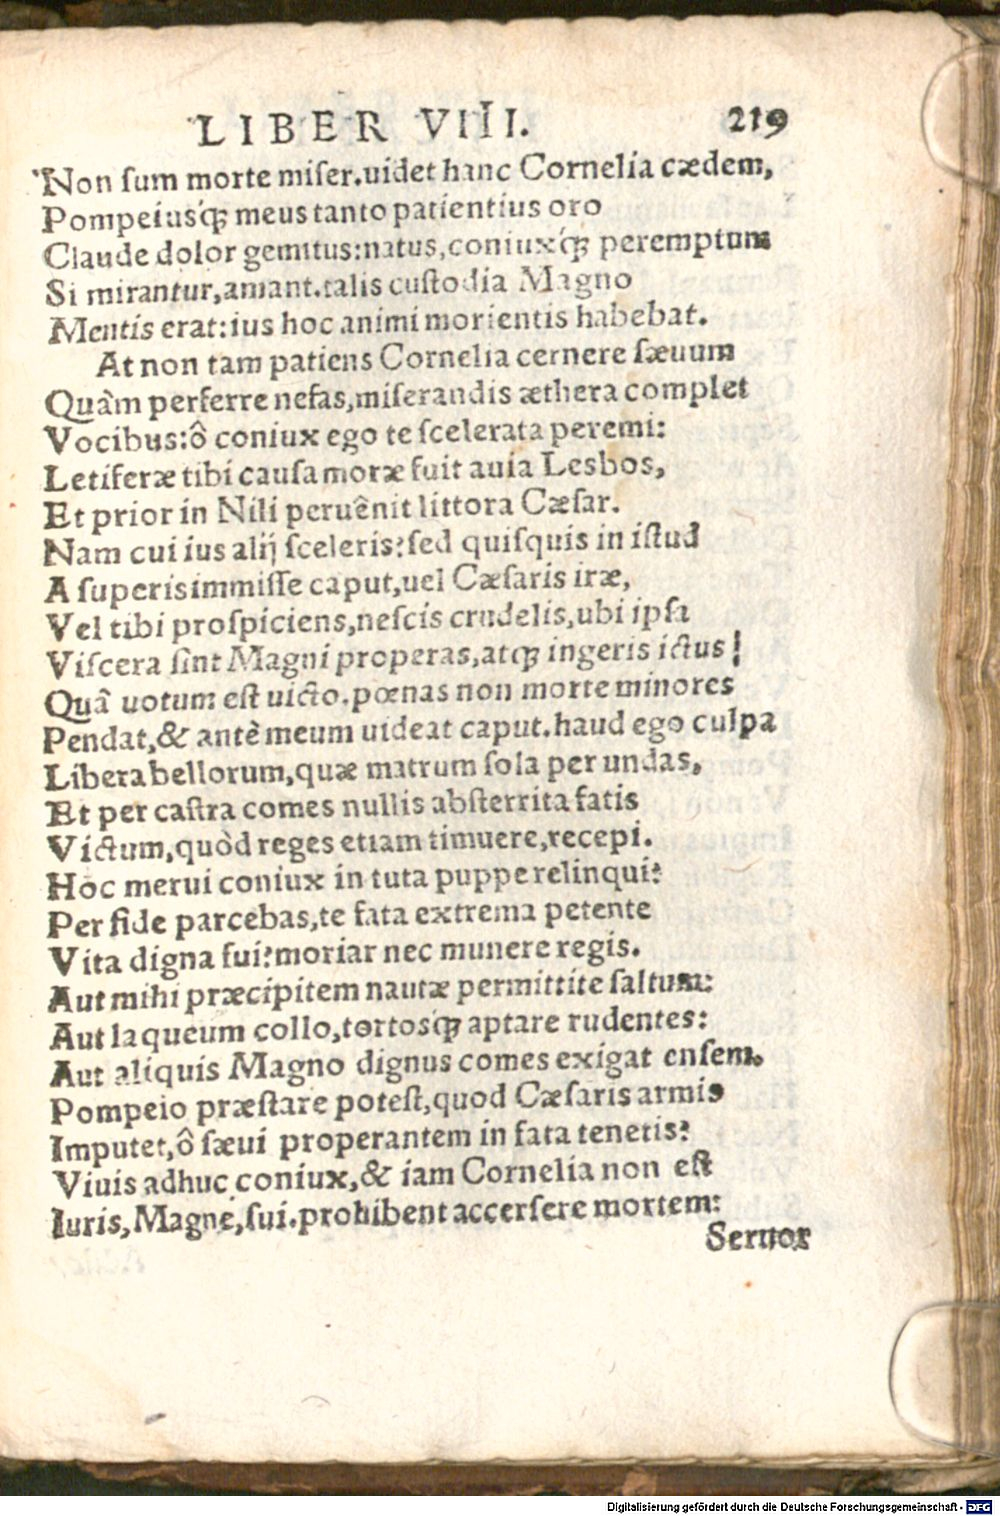 LIBER VIII. 219
Non sum morte miser.uidet hanc Cornelia cædem,
Pompeiusq́ꝫ meus tanto patientius oro
Claude dolor gemitus:natus,coniuxq́ꝫ peremptum
Si mirantur,amant.talis custodia Magno
Mentis erat:ius hoc animi morientis habebat.
At non tam patiens Cornelia cernere sæuum
Quàm perferre nefas,miserandis æthera complet
Vocibus:ô coniux ego te scelerata peremi:
Letiferæ tibi causa moræ fuit auia Lesbos,
Et prior in Nili peruênit littora Cæsar.
Nam cui ius alij sceleris?sed quisquis in istud
A superis immisse caput,uel Cæsaris iræ,
Vel tibi prospiciens,nescis crudelis,ubi ipsa
Viscera sint Magni properas,atqꝫ ingeris ictus!
Quâ uotum est uicto.pœnas non morte minores
Pendat,& antè meum uideat caput.haud ego culpa
Libera bellorum,quæ matrum sola per undas,
Et per castra comes nullis absterrita fatis
Victum,quòd reges etiam timuere,recepi.
Hoc merui coniux in tuta puppe relinqui?
Per fide parcebas,te fata extrema petente
Vita digna fui?moriar nec munere regis.
Aut mihi præcipitem nautæ permittite saltum:
Aut laqueum collo,tortosqꝫ aptare rudentes:
Aut aliquis Magno dignus comes exigat ensem.
Pompeio præstare potest,quod Cæsaris armis
Imputet,ô sæui properantem in fata tenetis?
Viuis adhuc coniux,& iam Cornelia non est
Iuris,Magne,sui.prohibent accersere mortem:
Seruor
Digitalisierung gefördert durch die Deutsche Forschungsgemeinschaft - DFG